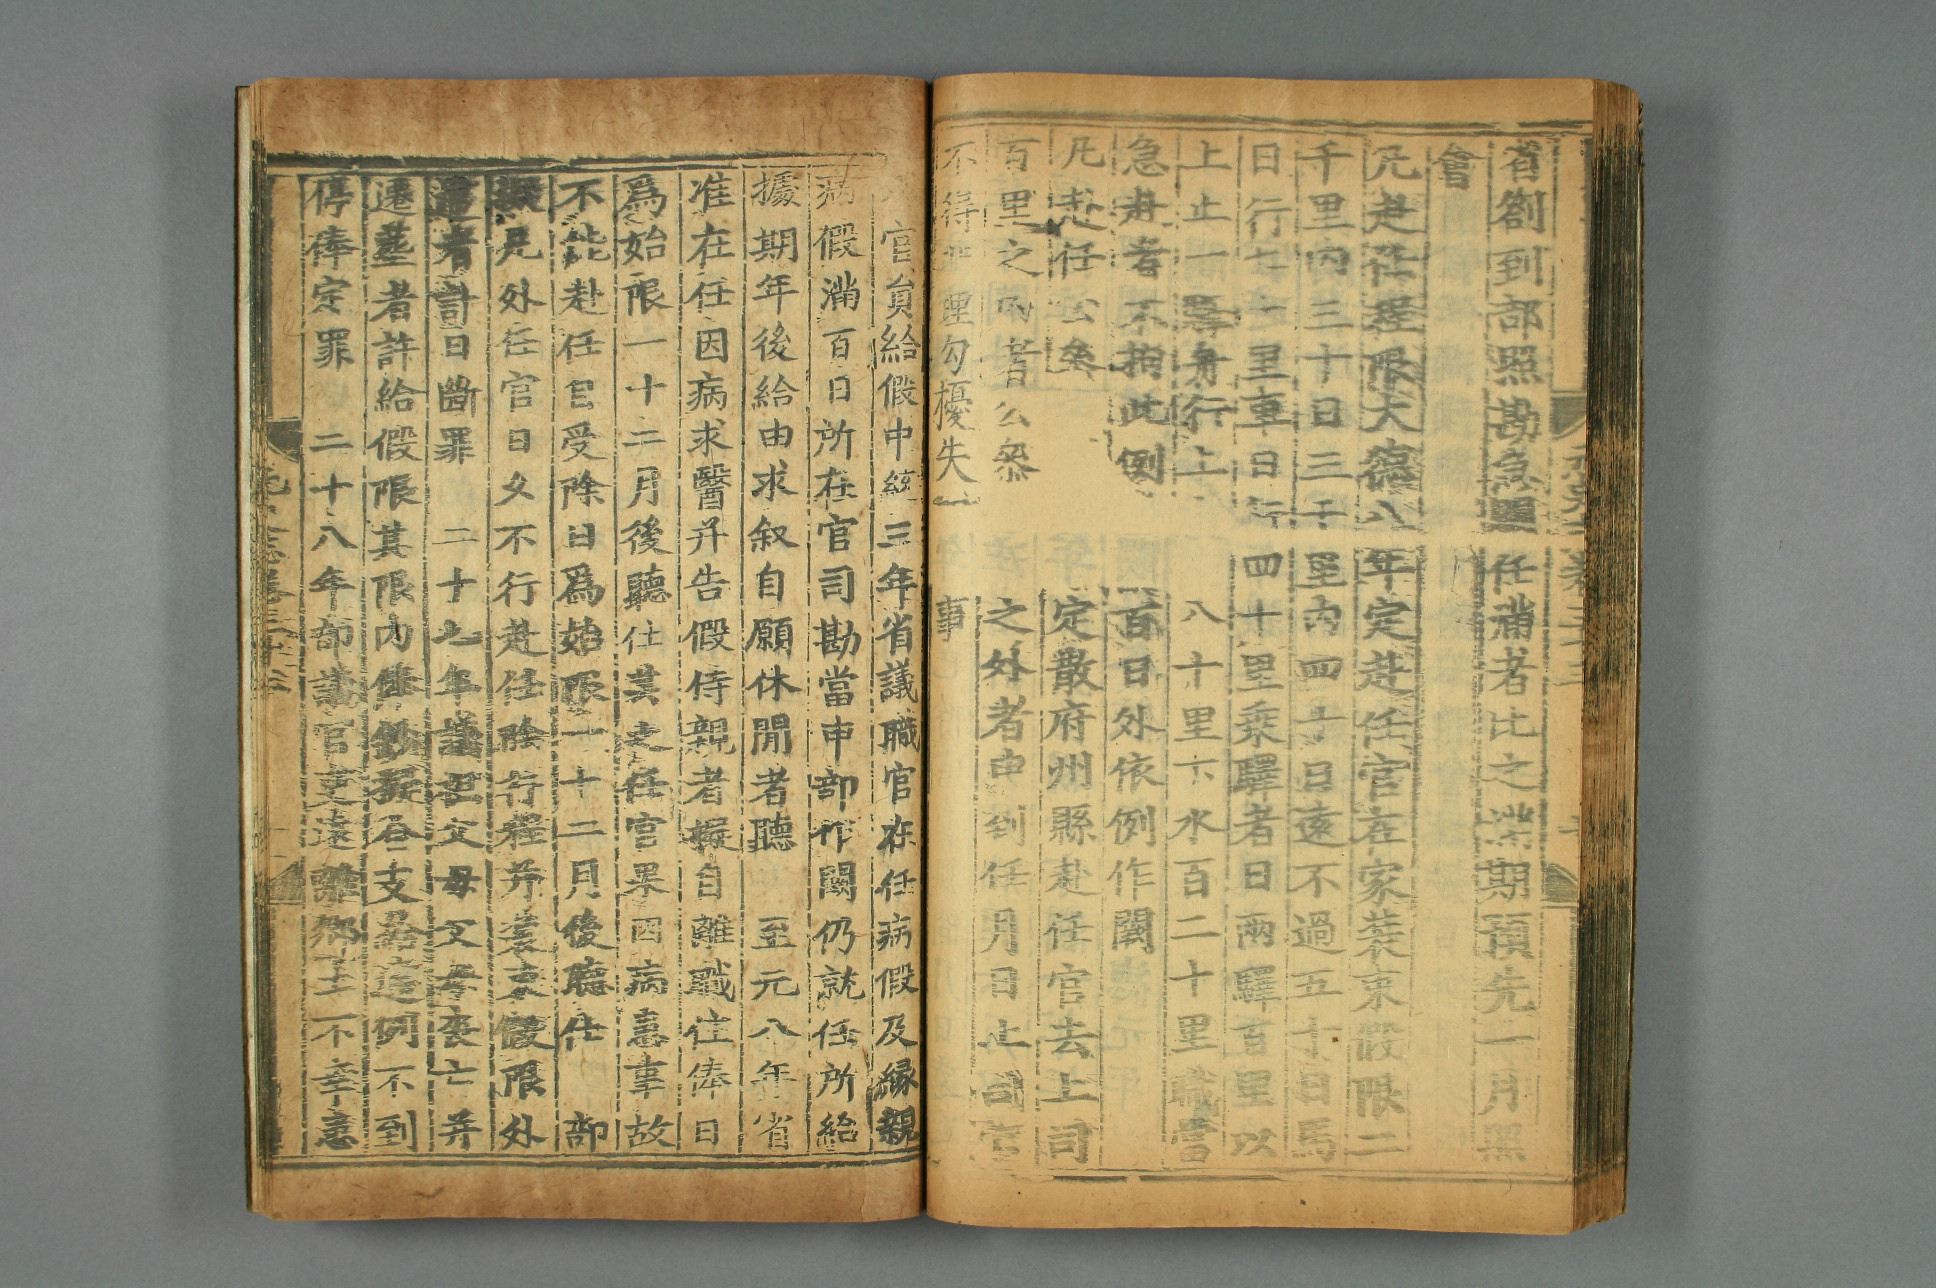 省劄到部照勘急闕任滿者比之滿期預先一月照
會
凡赴任程限大德八年定赴任官在家裝束假限二
千里內三十日三千里內四十日遠不過五十日馬
日行七十里車日行四十里乘驛者日兩驛百里以
上止一驛舟行上八十里下水百二十里職當
急赴者不拘此例 百日外依例作闕
凡赴任公參 定散府州縣赴任官去上司
百里之內者公參之外者申到任月日上司官
不得 理勾擾失 事
官員給假中統三年省議職官在任病假及緣親
病假滿百日所在官司勘當申部作闕仍就任所給
據期年後給由求叙自願休閒者聽 至元八年省
准在任因病求醫并告假侍親者擬自離職住俸日
爲始限一十二月後聽仕其之任官果因病患事故
不能赴任自受除日爲始限一十二月後聽仕 部
擬凡外任官日久不行赴任除行程并裝束假限外
違者計日斷罪 二十七年議祖父母父母喪亡并
遷葬者許給假限其限內俸鈔擬合支給違例不到
停俸定罪 二十八年部議官吏遠離鄉土不幸患